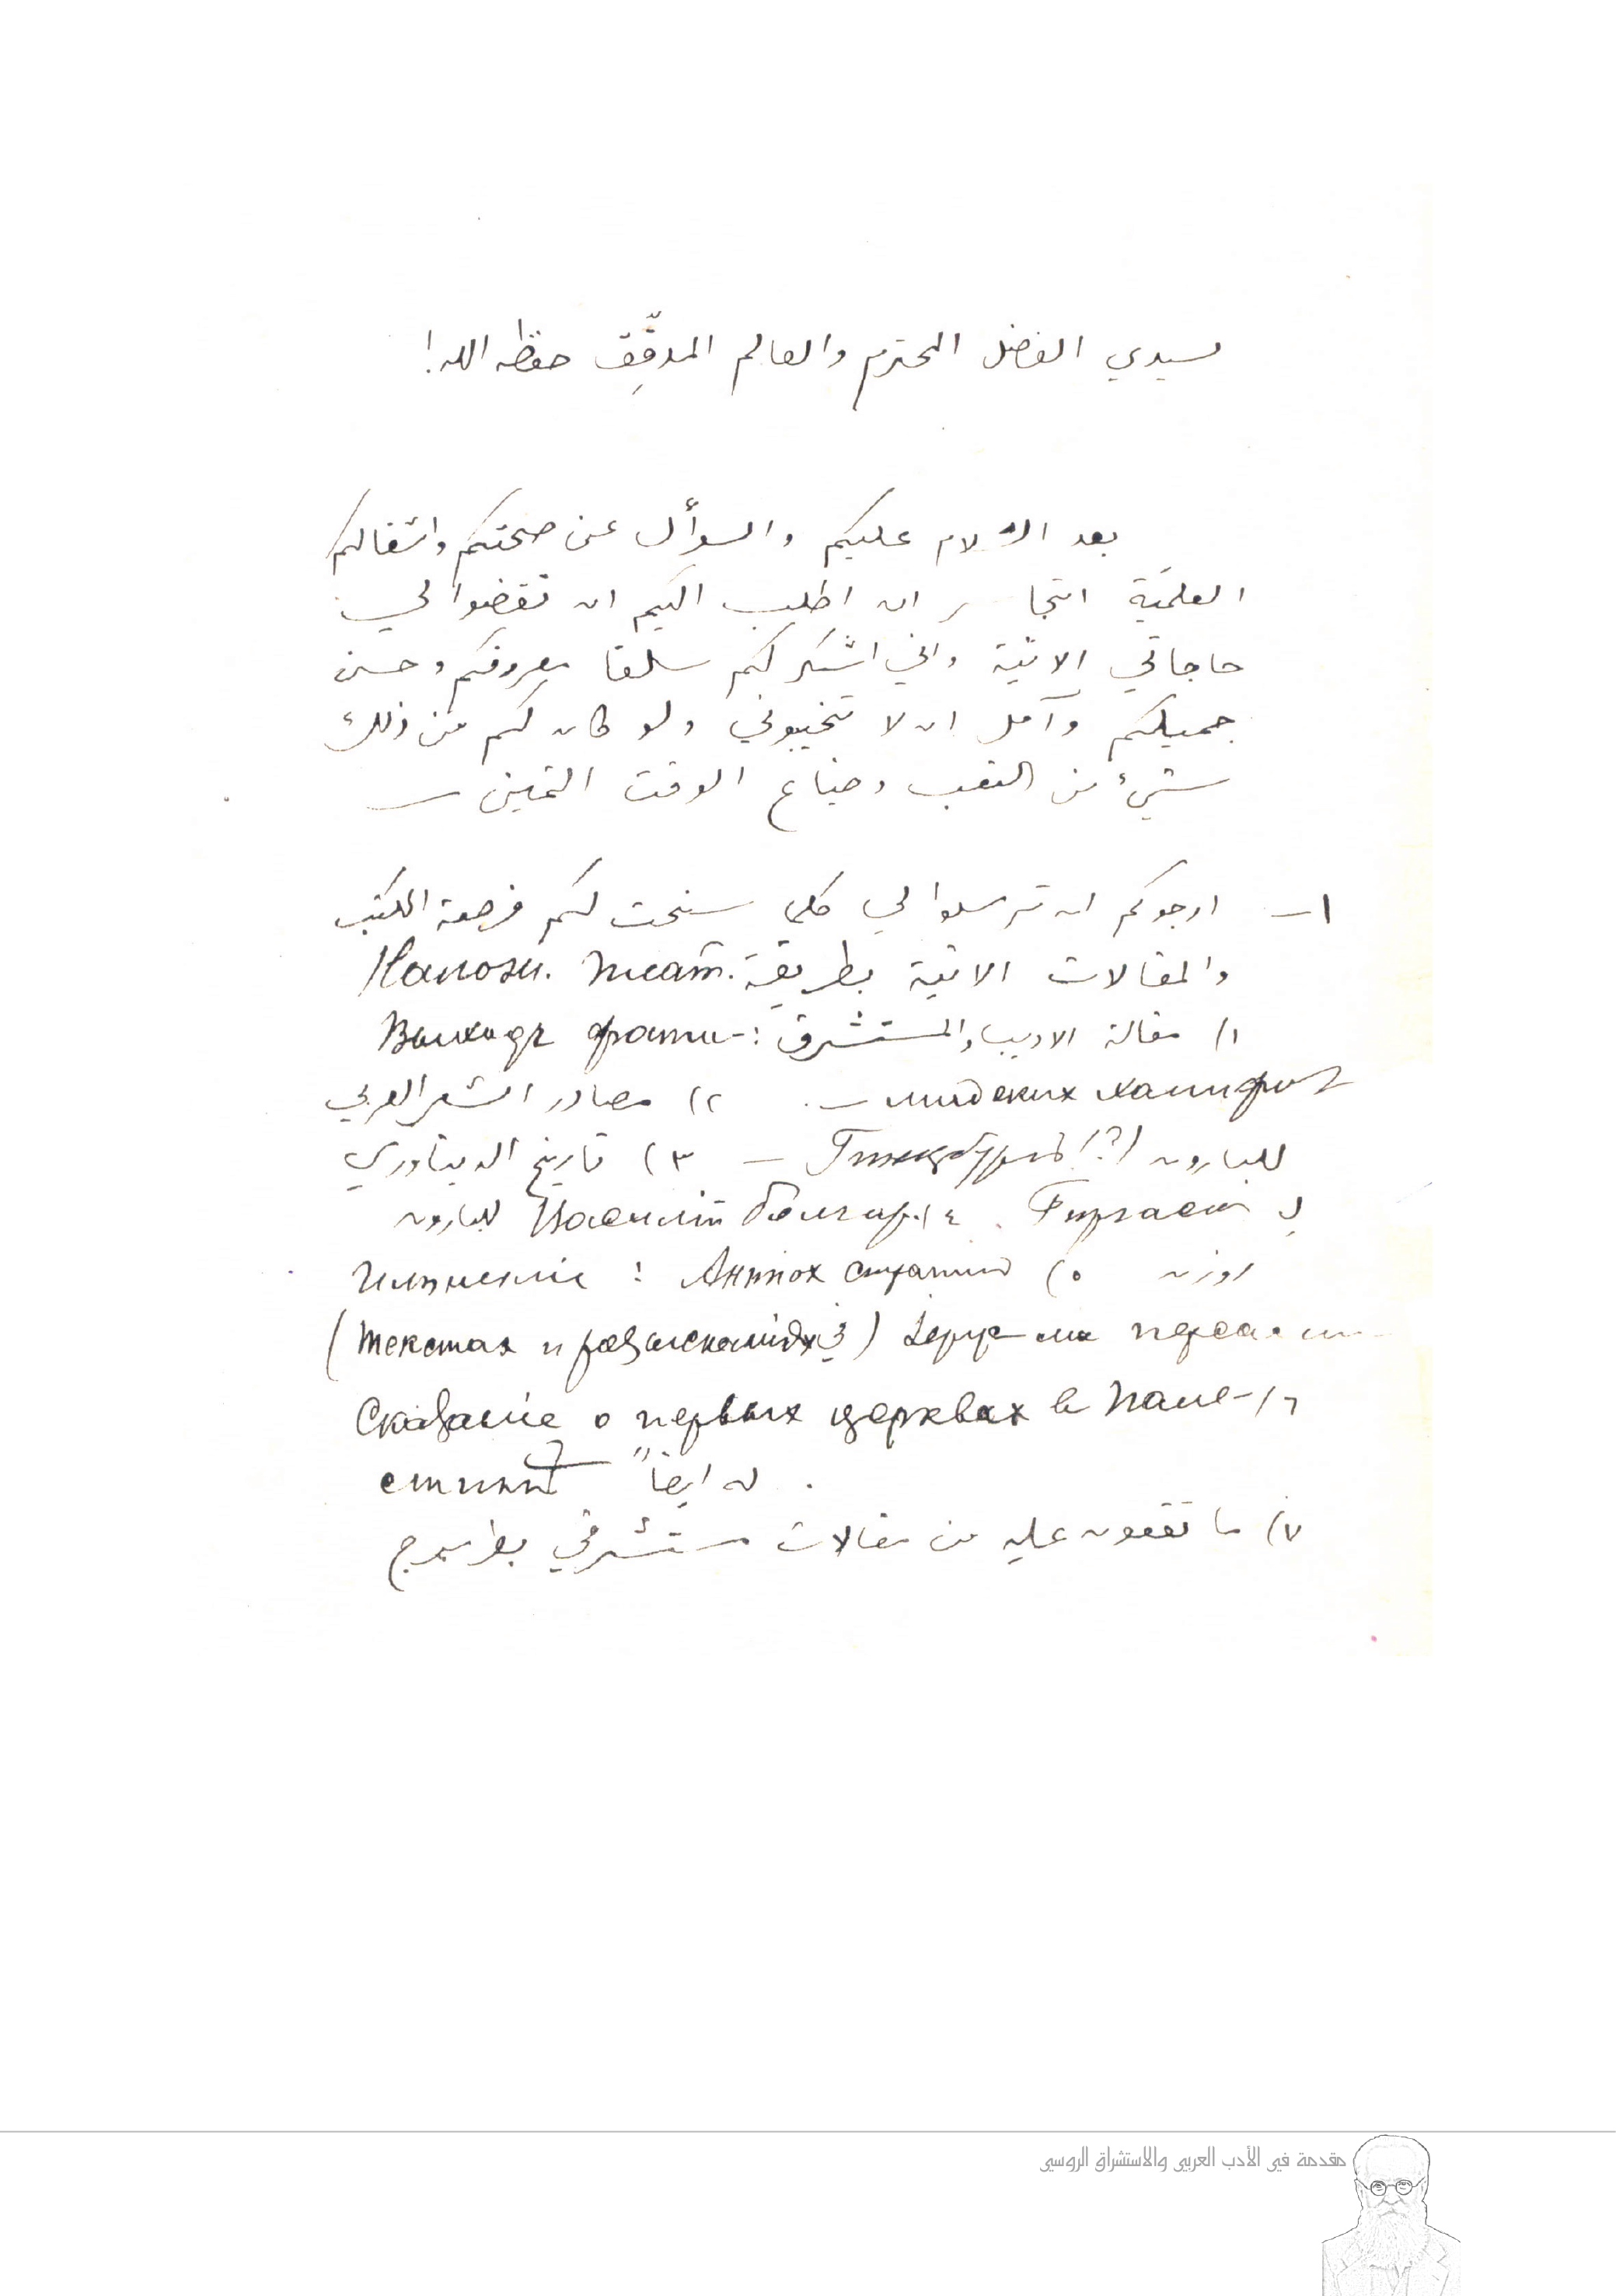 سيدي الفضل المحترم والعالم المدقِّق حفظه الله!
بعد السلام عليكم والسوأل عن صحتكم واشغالكم
العلميّة اتجاسر ان اطلب اليكم ان تقضوا لي
حاجاتي الاتية واني اشكر لكم سلفا معروفكم وحسن
جميلكم وآمل ان لا تخيبوني ولو كان لكم من ذلك
شيء من التعب وضياع الوقت الثمين —
١— ارجوكم ان ترسلوا لي كلما سنحت لكم فرصة الكتب
والمقالات الاتية بطريقة Налож. плат.
١) مقالة الاديب المستشرق: Выходъ фати-
мидских халифовъ — ٢) مصادر الشعر العربي
للبارون (?) Гинцбургъ — ٣) تاريخ الدينوري
لـ Гиргасъ. ٤) Василій Болгар. للبارون
روزن ٥) Антіох Стратиг: Плѣненіе
Іерусалима персами (في Текстах и разысканіях)
٦) Сказаніе о первых церквах в Пале-
стинѣ" له ايضاً.
٧) ما تقفون عليه من مقالات مستشرقي بطرسبرج
مقدمة في الأدب العربي والاستشراق الروسي